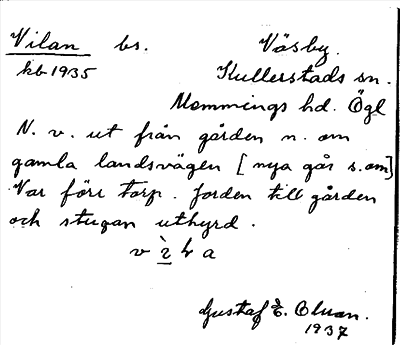 Vilan bs. Väsby.
kb 1935 Kullerstads sn.
Memmings hd. Ögl
N. v. ut från gården n. om
gamla landsvägen [nya går s. om]
Var förr torp. Jorden till gården
och stugan uthyrd.
Gustaf E.
1937